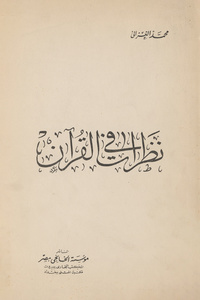 محمد الغزالي
نظرات في القرآن
الناشر
مؤسسة الخانجي بمصر